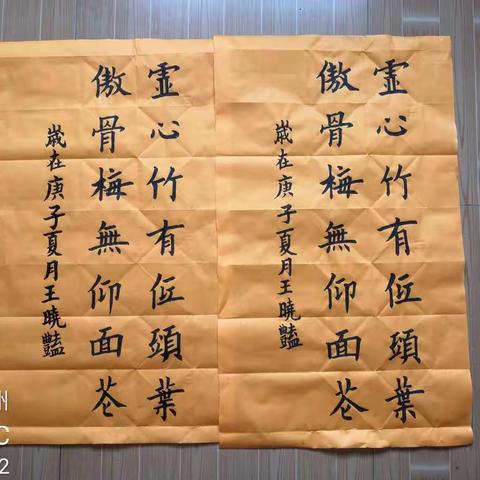 虚心竹有低頭葉
傲骨梅無仰面花
歲在庚子夏月王曉豔
虚心竹有低頭葉
傲骨梅無仰面花
歲在庚子夏月王曉豔
州
C
2